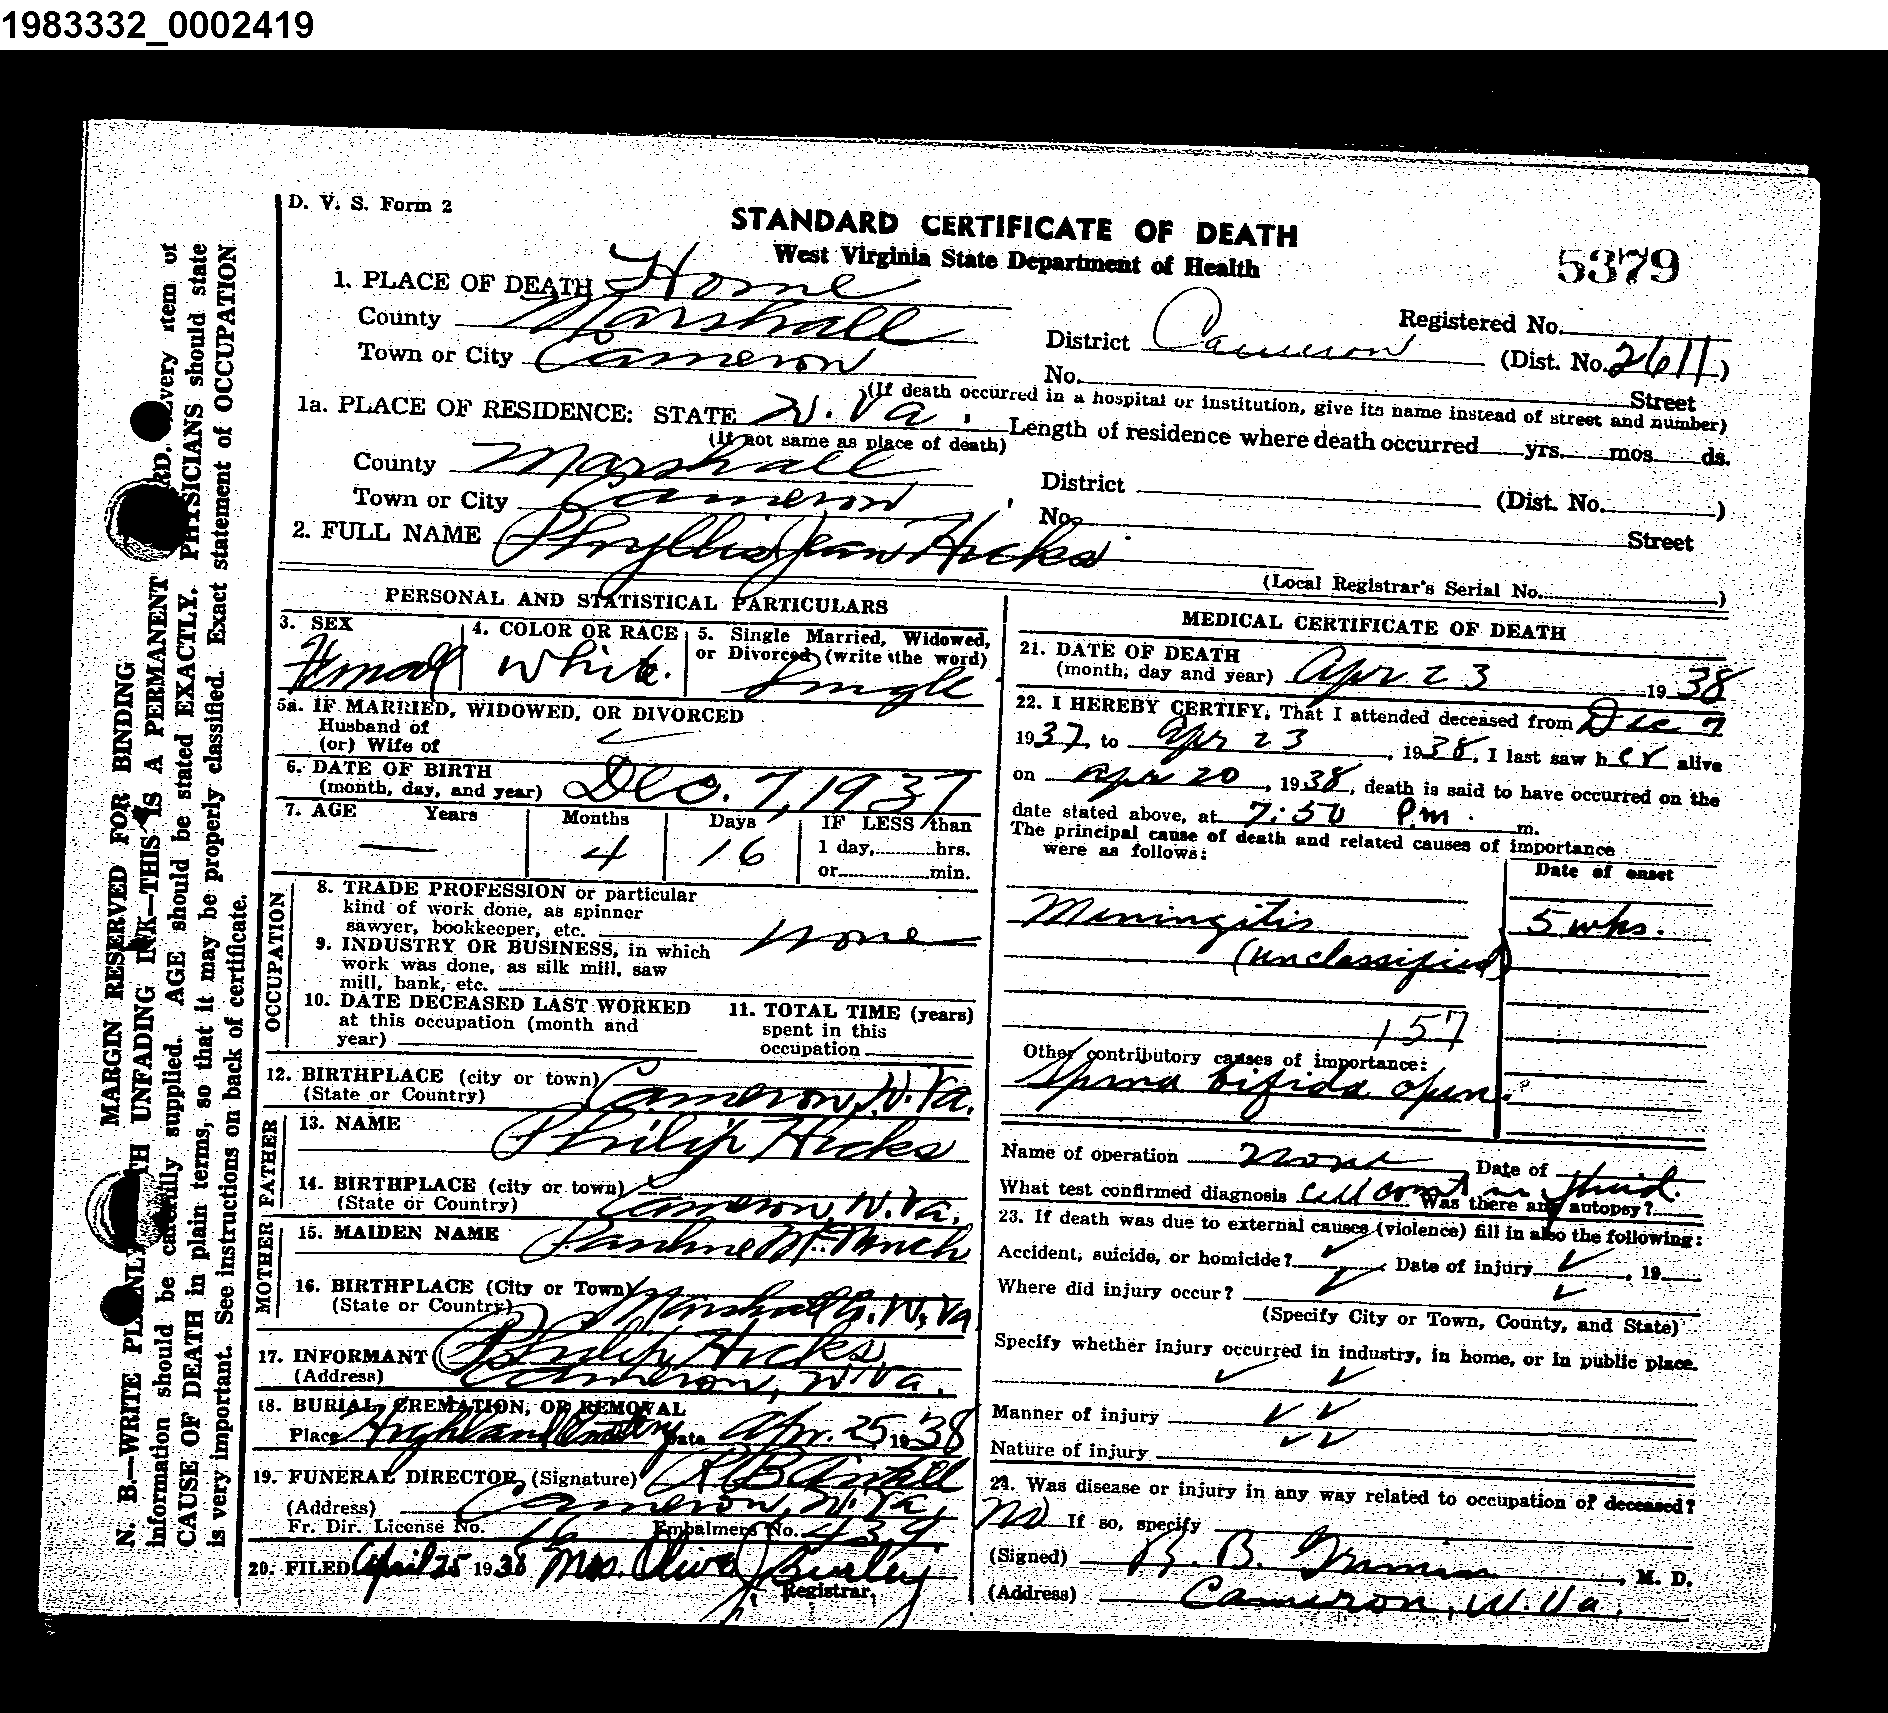 1983332_0002419
D. V. S. Form 2
STANDARD CERTIFICATE OF DEATH
West Virginia State Department of Health
5379
1. PLACE OF DEATH Home
County Marshall
Town or City Cameron
Registered No.
District Cameron (Dist. No. 2611)
No. Street
(If death occurred in a hospital or institution, give its name instead of street and number)
1a. PLACE OF RESIDENCE: STATE W. Va.
(If not same as place of death)
Length of residence where death occurred yrs. mos. ds.
County Marshall
Town or City Cameron
District (Dist. No. )
No. Street
2. FULL NAME Phyllis Jean Hicks
(Local Registrar's Serial No. )
PERSONAL AND STATISTICAL PARTICULARS
3. SEX Femall
4. COLOR OR RACE White.
5. Single Married, Widowed,
or Divorced (write the word)
Single
5a. IF MARRIED, WIDOWED, OR DIVORCED
Husband of
(or) Wife of
6. DATE OF BIRTH
(month, day, and year) Dec. 7, 1937
7. AGE Years Months Days IF LESS than
— 4 16 1 day, hrs.
or min.
OCCUPATION
8. TRADE PROFESSION or particular
kind of work done, as spinner
sawyer, bookkeeper, etc. none
9. INDUSTRY OR BUSINESS, in which
work was done, as silk mill, saw
mill, bank, etc.
10. DATE DECEASED LAST WORKED
at this occupation (month and
year)
11. TOTAL TIME (years)
spent in this
occupation
12. BIRTHPLACE (city or town)
(State or Country) Cameron, W. Va.
FATHER
13. NAME Philip Hicks
14. BIRTHPLACE (city or town)
(State or Country) Cameron, W. Va.
MOTHER
15. MAIDEN NAME Pauline
16. BIRTHPLACE (City or Town)
(State or Country) Marshall Co. W. Va
17. INFORMANT Philip Hicks
(Address) Cameron, W. Va.
18. BURIAL, CREMATION, OR REMOVAL
Place Highland Cemetery Date Apr. 25, 1938
19. FUNERAL DIRECTOR (Signature) R B
(Address) Cameron, W. Va.
Fr. Dir. License No. 16 Embalmers No. 439
20. FILED April 25 1938 Mrs. Olive J. Burley
Registrar.
MEDICAL CERTIFICATE OF DEATH
21. DATE OF DEATH
(month, day and year) Apr 23 1938
22. I HEREBY CERTIFY, That I attended deceased from Dec 7
1937, to Apr 23, 1938, I last saw her alive
on Apr 20, 1938, death is said to have occurred on the
date stated above, at 7:50 P.m. m.
The principal cause of death and related causes of importance
were as follows:
Date of onset
Meningitis 5 wks.
(unclassified)
157
Other contributory causes of importance:
Spina bifida open.
Name of operation None Date of
What test confirmed diagnosis Cell count in fluid. Was there any autopsy?
23. If death was due to external causes (violence) fill in also the following:
Accident, suicide, or homicide? Date of injury , 19
Where did injury occur?
(Specify City or Town, County, and State)
Specify whether injury occurred in industry, in home, or in public place.
Manner of injury
Nature of injury
24. Was disease or injury in any way related to occupation of deceased?
No If so, specify
(Signed) B. , M. D.
(Address) Cameron, W. Va.
MARGIN RESERVED FOR BINDING
N. B.—WRITE PLAINLY WITH UNFADING INK—THIS IS A PERMANENT RECORD. Every item of
information should be carefully supplied. AGE should be stated EXACTLY. PHYSICIANS should state
CAUSE OF DEATH in plain terms, so that it may be properly classified. Exact statement of OCCUPATION
is very important. See instructions on back of certificate.